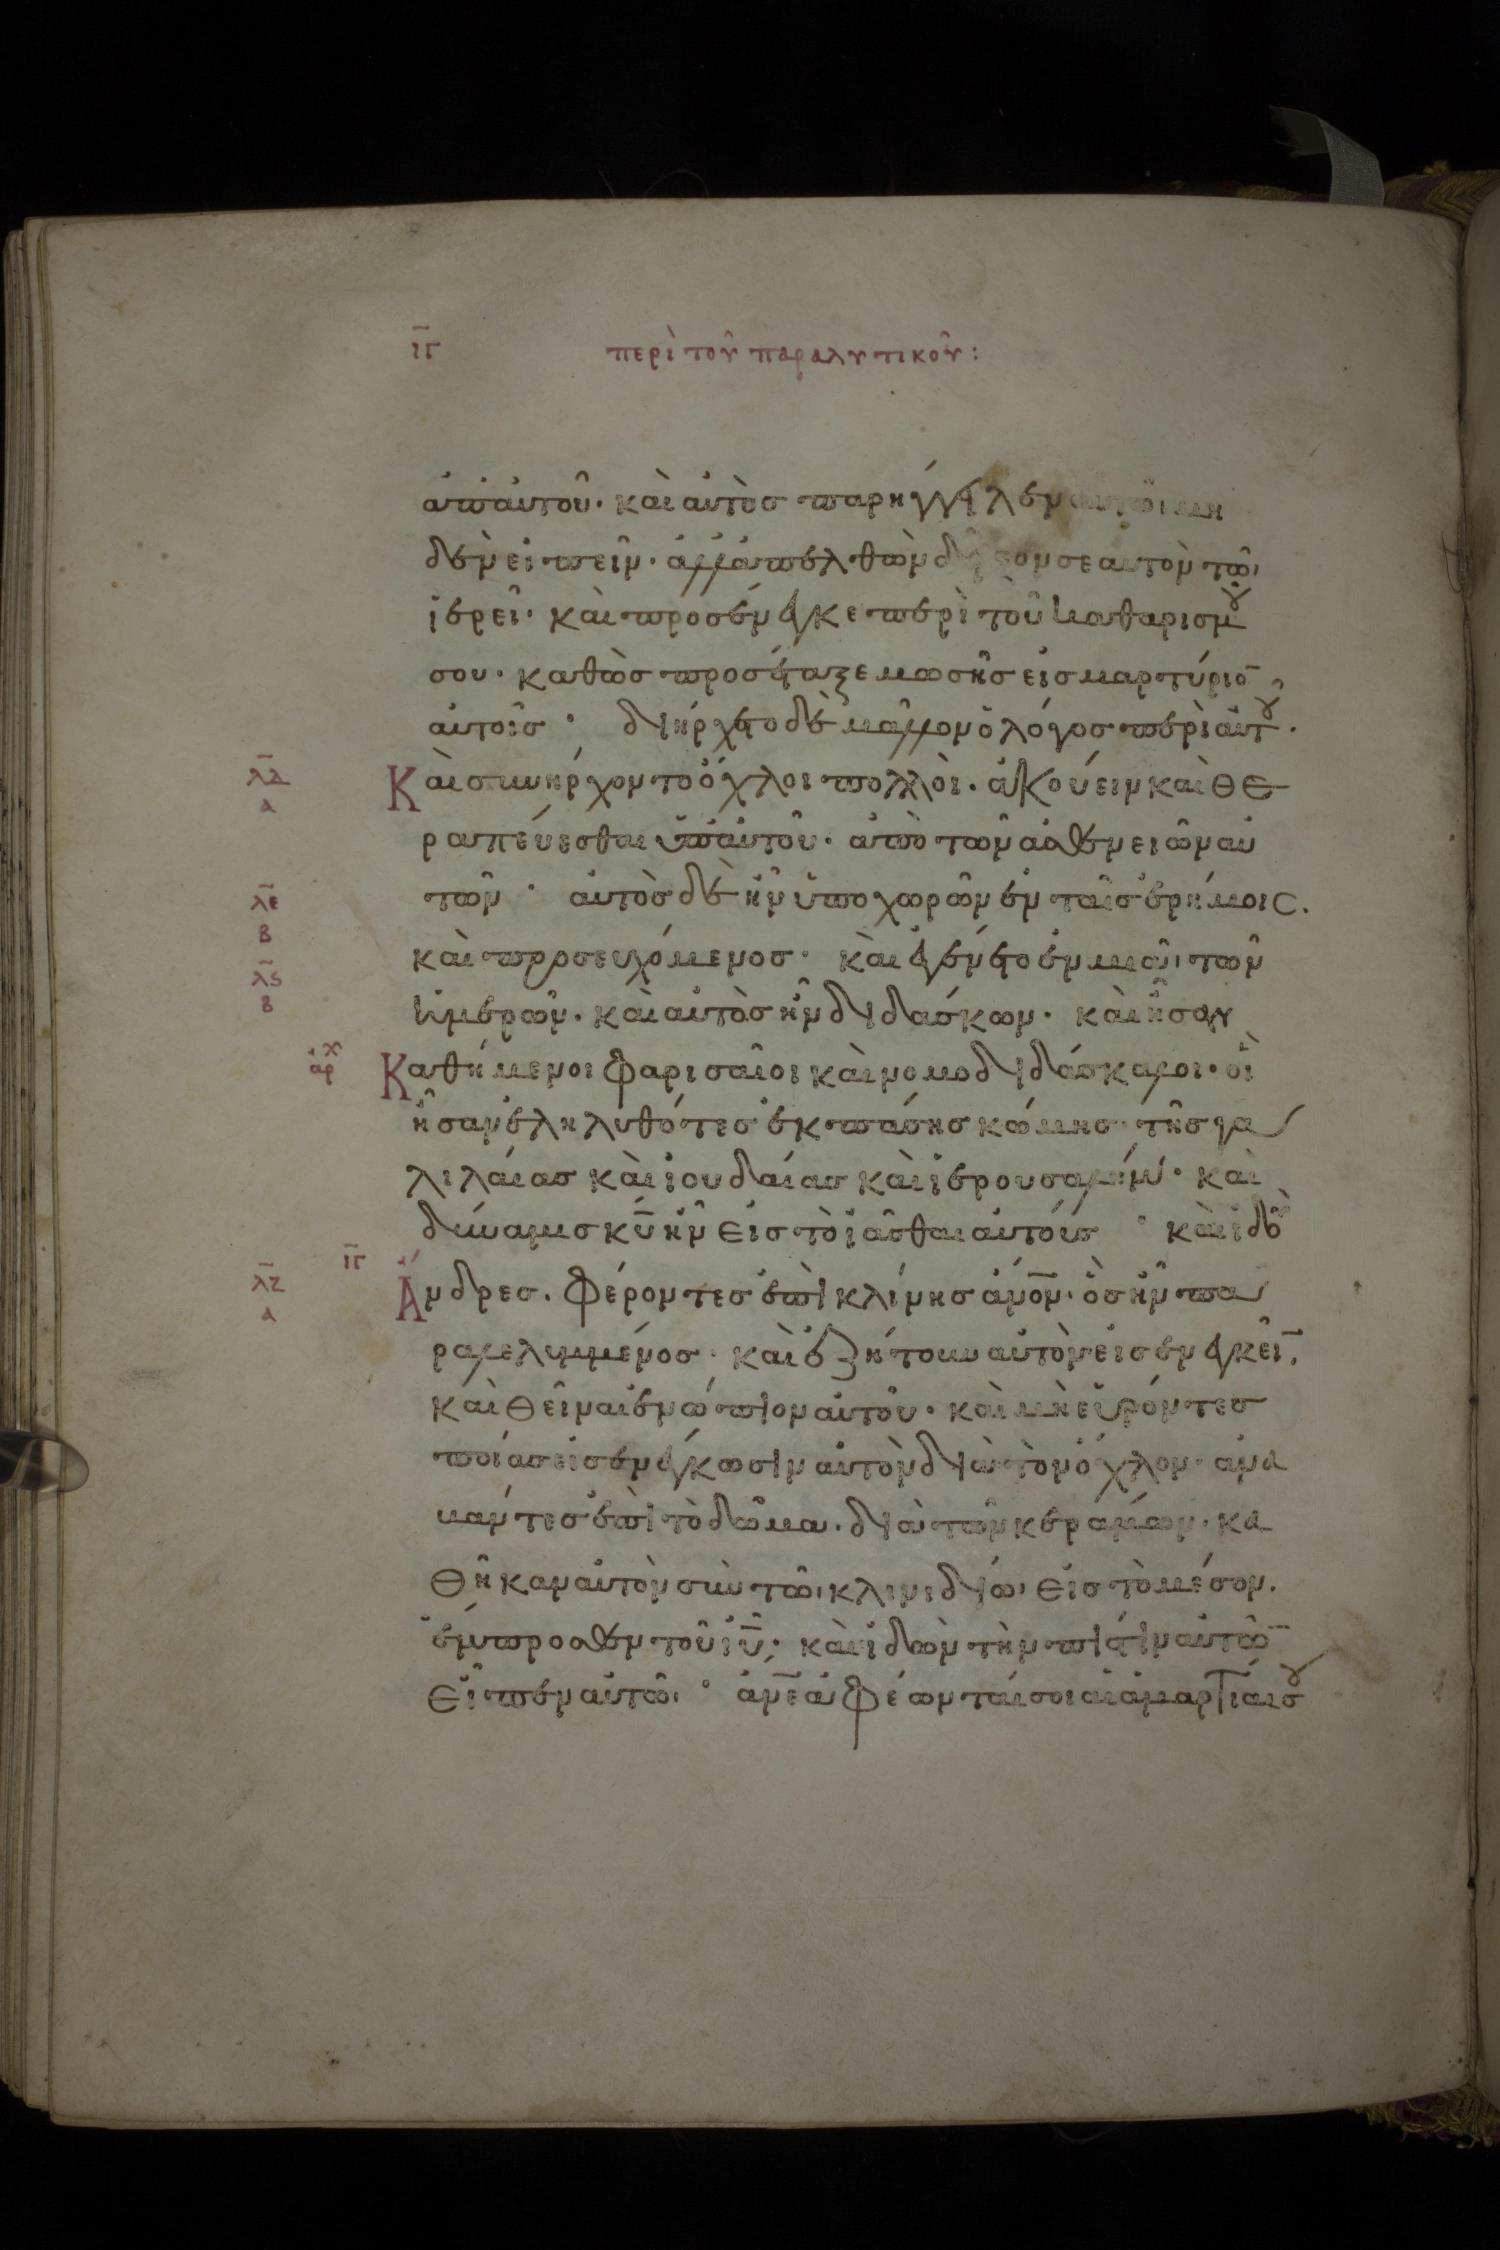 ιγ περὶ τοῦ παραλυτικοῦ:
ἀπ' αὐτοῦ. καὶ αὐτὸς παρήγγειλεν αὐτῶι μη
δενὶ εἰπεῖν. ἀλλὰ ἀπελθὼν δεῖξον σεαυτὸν τῶι
ἱερεῖ. καὶ προσένεγκε περὶ τοῦ καθαρισμοῦ
σου. καθὼς προσέταξε μωσῆς εἰς μαρτύριο̅
αὐτοῖς. διήρχετο δὲ μᾶλλον ὁ λόγος περὶ αὐτοῦ.
λδ α Καὶ συνήρχοντο ὄχλοι πολλοὶ. ἀκούειν καὶ θε
ραπεύεσθαι ὑπ' αὐτοῦ. ἀπὸ τῶν ἀσθενειῶν αὐ
λε β τῶν. αὐτὸς δὲ ἦν ὑποχωρῶν ἐν ταῖς ἐρήμοις.
λς β καὶ προσευχόμενος. καὶ ἐγένετο ἐν μιᾶι τῶν
ἡμερῶν. καὶ αὐτὸς ἦν διδάσκων. καὶ ἦσαν
ἀρχ Καθήμενοι φαρισαῖοι καὶ νομοδιδάσκαλοι. οἳ
ἦσαν ἐληλυθότες ἐκ πάσης κώμης τῆς γα
λιλαίας καὶ ἰουδαίας καὶ ἱερουσαλήμ. καὶ
δύναμις κ̅υ̅ ἦν εἰς τὸ ἰᾶσθαι αὐτούς. καὶ ἰδοὺ
ιγ λζ α Ἄνδρες. φέροντες ἐπὶ κλίνης ἀν̅ο̅ν̅. ὃς ἦν πα
ραλελυμμένος. καὶ ἐζήτουν αὐτὸν εἰσενεγκεῖ̅.
καὶ θεῖναι ἐνώπιον αὐτοῦ. καὶ μὴ εὑρόντες
ποίας εἰσενέγκωσιν αὐτὸν διὰ τὸν ὄχλον. ἀνα
βάντες ἐπὶ τὸ δῶμα. διὰ τῶν κεράμων. κα
θῆκαν αὐτὸν σὺν τῶι κλινιδίωι εἰς τὸ μέσον.
ἔμπροσθεν τοῦ ἰ̅υ̅. καὶ ἰδὼν τὴν πίστιν αὐτῶ̅
εἶπεν αὐτῶι. ἄν̅ε̅ ἀφέωνταί σοι αἱ ἁμαρτίαι σου